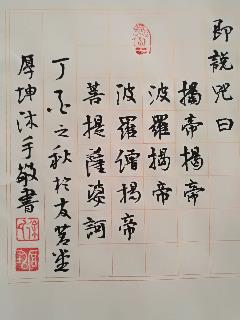 即說咒曰
揭帝揭帝
波羅揭帝
波羅僧揭帝
菩提薩婆訶
丁酉之秋於友茗堂
厚坤沐手敬書